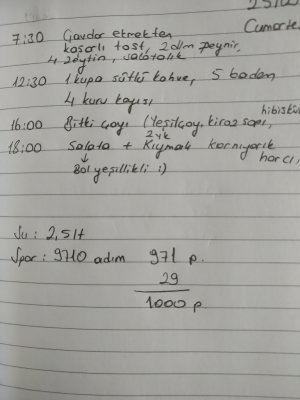 Cumarte
7:30 Çavdar ekmekten
kaşarlı tost, 2 dlm peynir,
4 zeytin, salatalık
12:30 1 kupa sütlü kahve, 5 badem
4 kuru kayısı
hibisküs
16:00 Bitki çayı (Yeşilçay, kiraz sapı,
18:00 Salata + Kıymalı karnıyarık
harcı,
Bol yeşillikli :)
Su : 2,5 lt
Spor : 9710 adım 971 p.
29
1000 p.